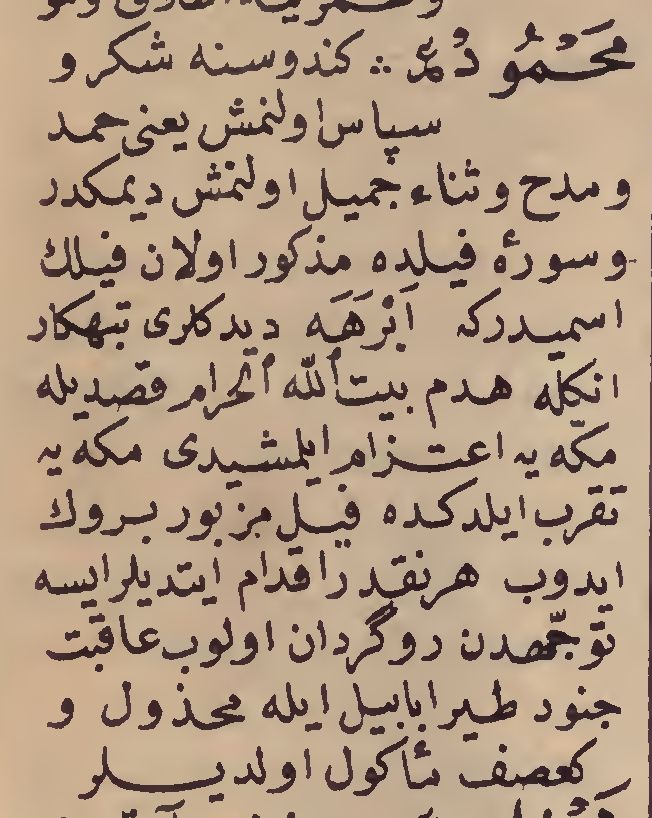 مَحْمُودٌ ∴ كندوسنه شكر و
سپاس اولنمش يعنى حمد
و مدح و ثناء جميل اولنمش ديمكدر
و سورۀ فيلده مذكور اولان فيلك
اسميدركه اَبْرَهَه ديدكلرى تبهكار
انكله هدم بيت ٱلله ٱلحرام قصديله
مكّه يه اعتزام ايلمشيدى مكه يه
تقرب ايلدكده فيل مزبور بروك
ايدوب هرنقدر اقدام ايتديلرايسه
توجّهدن روگردان اولوب عاقبت
جنود طير ابابيل ايله مخذول و
كعصف مأكول اولديلر